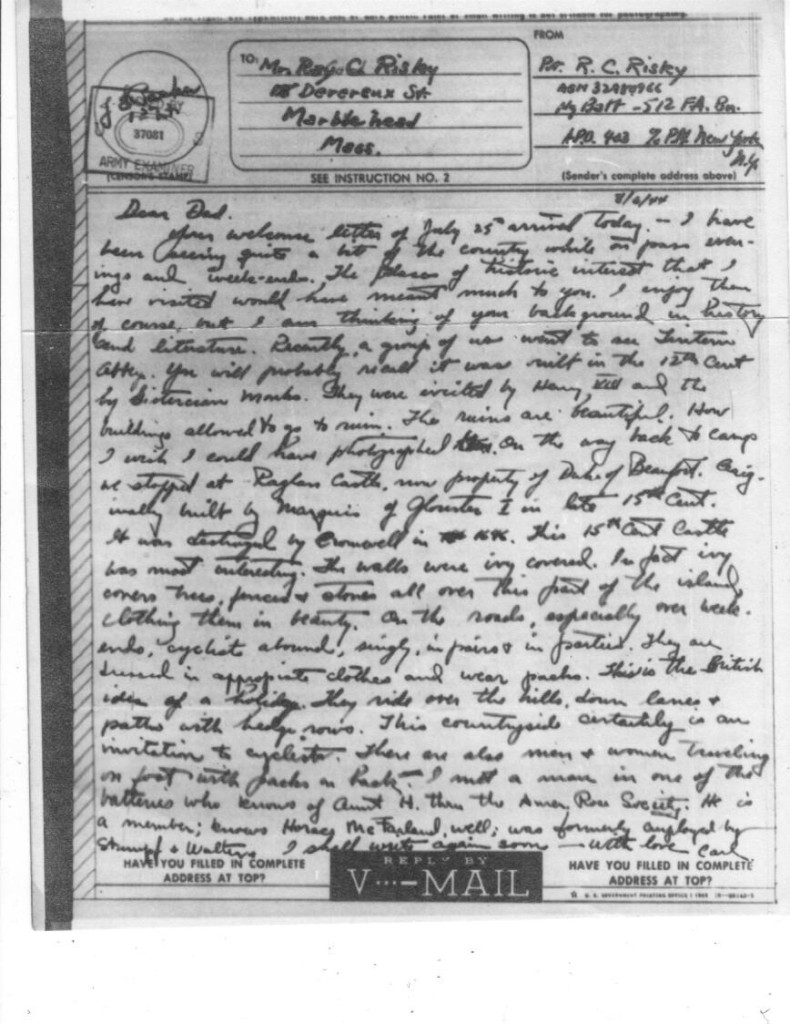 FROM
TO: Mr. Roy C. Risky
18 Devereux St.
Marblehead
Mass.
Pvt. R. C. Risky
ASN 32984966
Hq Batt - 512 F.A. Bn.
A.P.O. 403 % P.M. New York
N.Y.
37081
ARMY EXAMINER
(CENSOR'S STAMP)
SEE INSTRUCTION NO. 2
(Sender's complete address above)
Dear Dad.
Your welcome letter of July 25th arrived today. — I have
been seeing quite a bit of the country while on pass even-
ings and week-ends. The places of historic interest that I
have visited would have meant much to you. I enjoy them
of course, but I am thinking of your background in history
and literature. Recently, a group of us went to see Tintern
Abbey. You will probably recall it was built in the 12th Cent
by Cistercian Monks. They were evicted by Henry VIII and the
buildings allowed to go to ruin. The ruins are beautiful. How
I wish I could have photographed them. On the way back to camp
we stopped at Raglan Castle, now property of Duke of Beaufort. Orig-
inally built by Marquis of Glouster I in late 15th Cent.
It was destroyed by Cromwell in 1646. This 15th Cent Castle
was most interesting. The walls were ivy covered. In fact ivy
covers trees, fences & stones all over this part of the island,
clothing them in beauty. On the roads, especially over week-
ends, cyclists abound, singly, in pairs & in parties. They are
dressed in appropiate clothes and wear packs. This is the British
idea of a holiday. They ride over the hills, down lanes &
paths with hedge rows. This countryside certainly is an
invitation to cyclists. There are also men & women traveling
on foot with packs on back. I met a man in one of the
batteries who knows of Aunt H. thru the Amer. Rose Society. He is
a member; knows Horace McFarland, well; was formerly employed by
Stumpf & Walters. I shall write again soon — With love Carl
HAVE YOU FILLED IN COMPLETE
ADDRESS AT TOP?
REPLY BY
V···—MAIL
HAVE YOU FILLED IN COMPLETE
ADDRESS AT TOP?